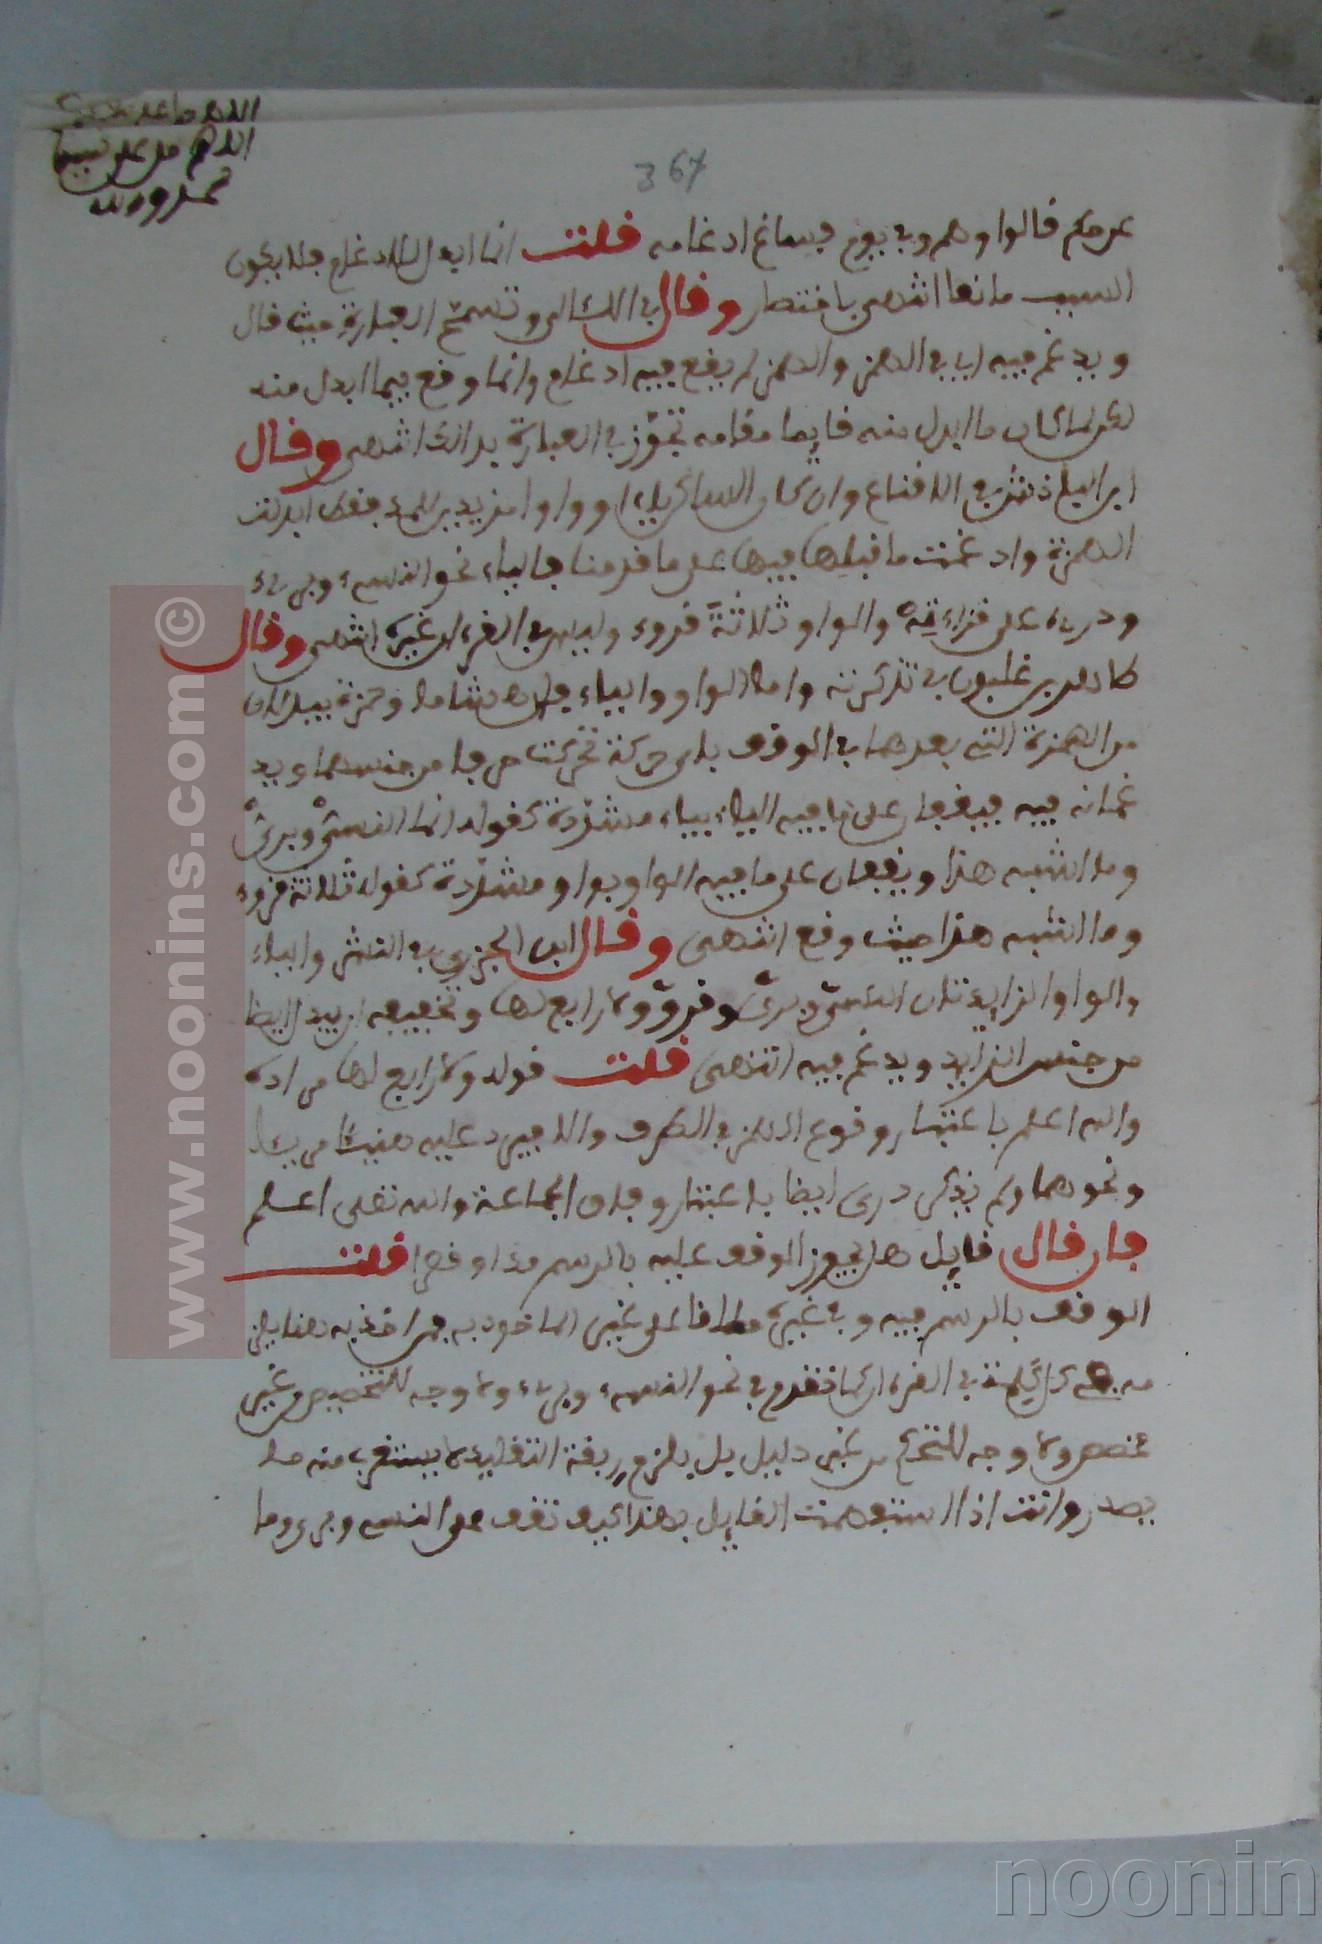 اللهم صل على نبينا
محمد وءاله
367
عن حكم قالوا وهم وفي يوم فيمانع ادغامه قلت انما ابدل للادغام فلا يكون
السبب مانعا انتهى باختصار وقال في اللئالي وتسمح العبارة حيث قال
ويدغم فيه اي في الهمز والهمز لم يقع فيه ادغام وانما وقع فيما ابدل منه
لكن لما كان ما ابدل منه قايما مقامه تجوز في العبارة بذالك انتهى وقال
ابن الباذش في الاقناع وان كان الساكن ياء او واوا مزيدين للمد فقط ابدلت
الهمزة وادغمت ما قبلها فيها على ما قدمنا فالياء نحو النسيء وبريء
ودريء على قراءته والواو ثلاثة قروء وليس في القرءان غيره انتهى وقال
طاهر بن غلبون في تذكرته واما الواو والياء فان هشاما وحمزة يبدلان
من الهمزة التي بعدهما في الوقف باي حركة تحركت حرفا من جنسهما ويد
غمانه فيه فيقفان على ما فيه الياء بياء مشددة كقوله انما النسيّ وبريّ
وما اشبه هذا ويقفان على ما فيه الواو بواو مشددة كقوله ثلاثة قروء
وما اشبه هذا حيث وقع انتهى وقال ابن الجزري في النشر والياء
والواو الزايدتان النسيّ وبريّ وقروّ ولا رابع لها وتخفيفه ان يبدل ايضا
من جنس الزايد ويدغم فيه انتهى قلت قوله ولا رابع لها مراده
والله اعلم باعتبار وقوع الهمز في الطرف والا فيرد عليه هنيئا مريئا
ونحوهما ولم يذكر درى ايضا باعتبار وفاق الجماعة والله تعلى اعلم
فان قال قايل هل يجوز الوقف عليه بالرسم مدا وقصرا قلت
الوقف بالرسم فيه وفي غيره مطلقا على غير الماخوذ به فمن اخذ به هنا يلز
مه في كل كلمة في القرءان كما تقدم في نحو النسيء وبريء ولا وجه للتخصيص من غير
مخصص ولا وجه للتحكم من غير دليل بل يلزم ربقة التقليد لا يستغرب منه ما
يصدر وانت اذا استفهمت القايل بهذا كيف تقف على النسيء وبريء وما
www.noonins.com©
noonin